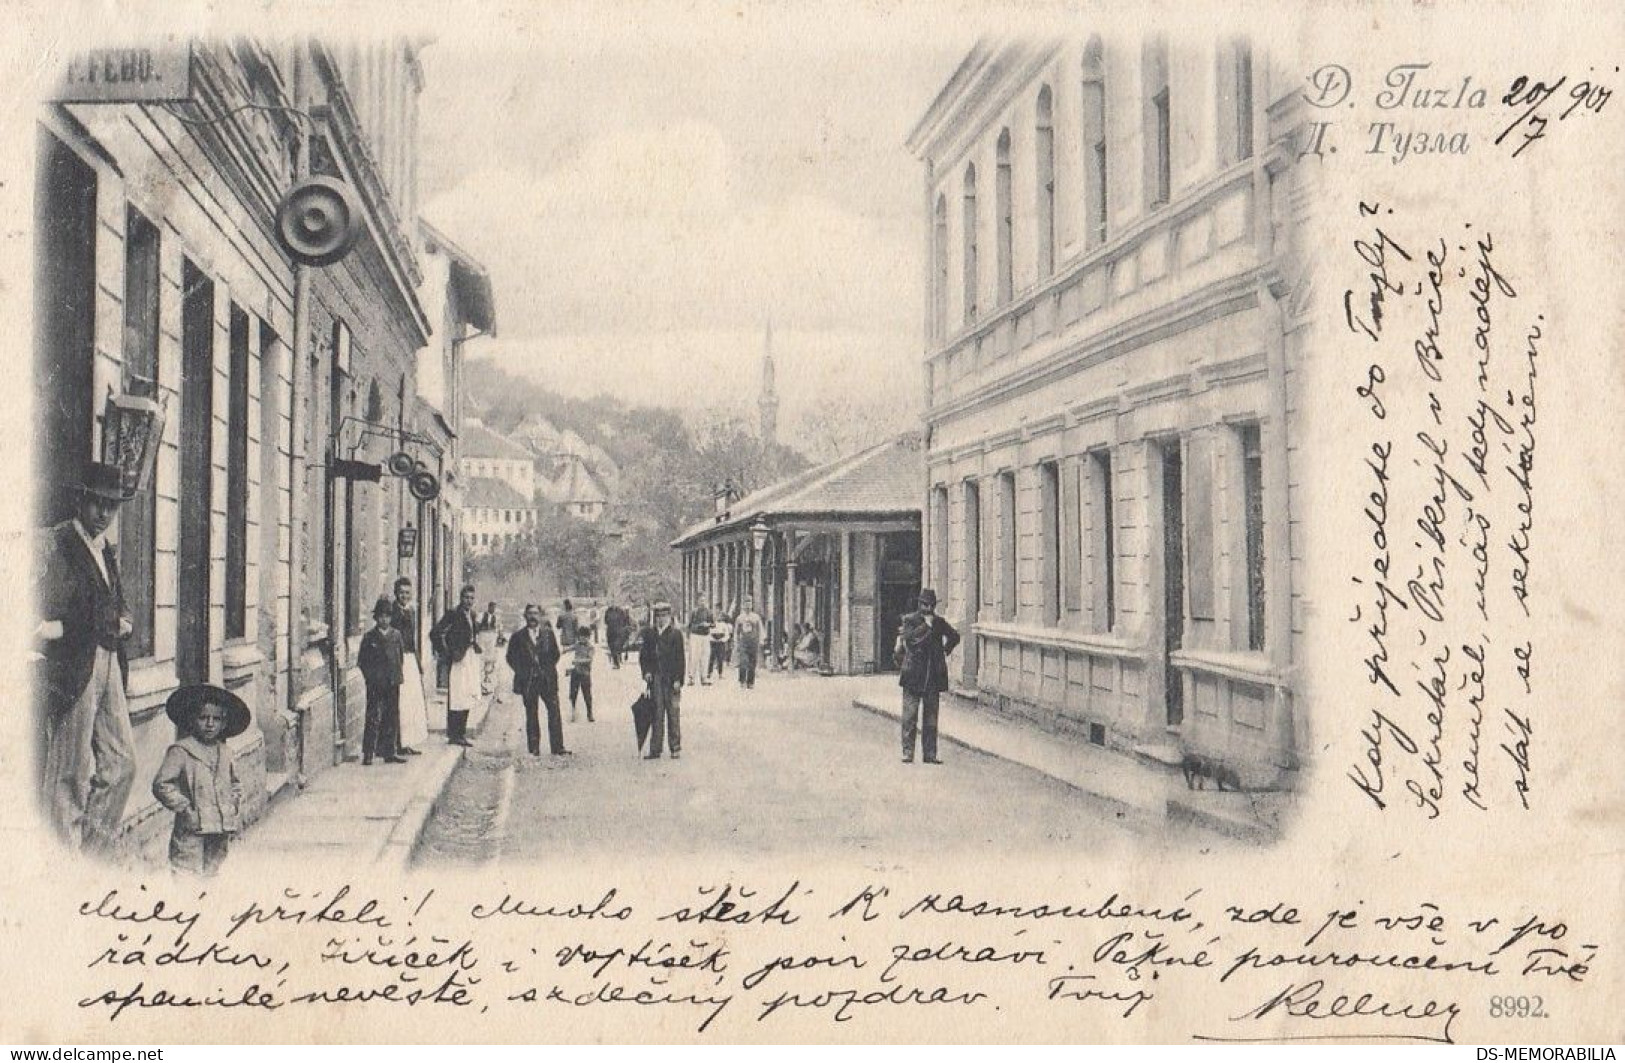 P. FEHD.
D. Tuzla 20/7 901
Д. Тузла
Kdy přijedete do Tuzly?
Sekretář Přikryl v Brčce
zemřel, máš tedy naději
stát se sekretářem.
Milý příteli! Mnoho štěstí k zasnoubení, zde je vše v po-
řádku, Jiříček i Vojtíšek jsou zdrávi. Pěkné poroučení Tvé
spanilé nevěstě, srdečný pozdrav. Tvůj
Kellner
8992.
DS-MEMORABILIA